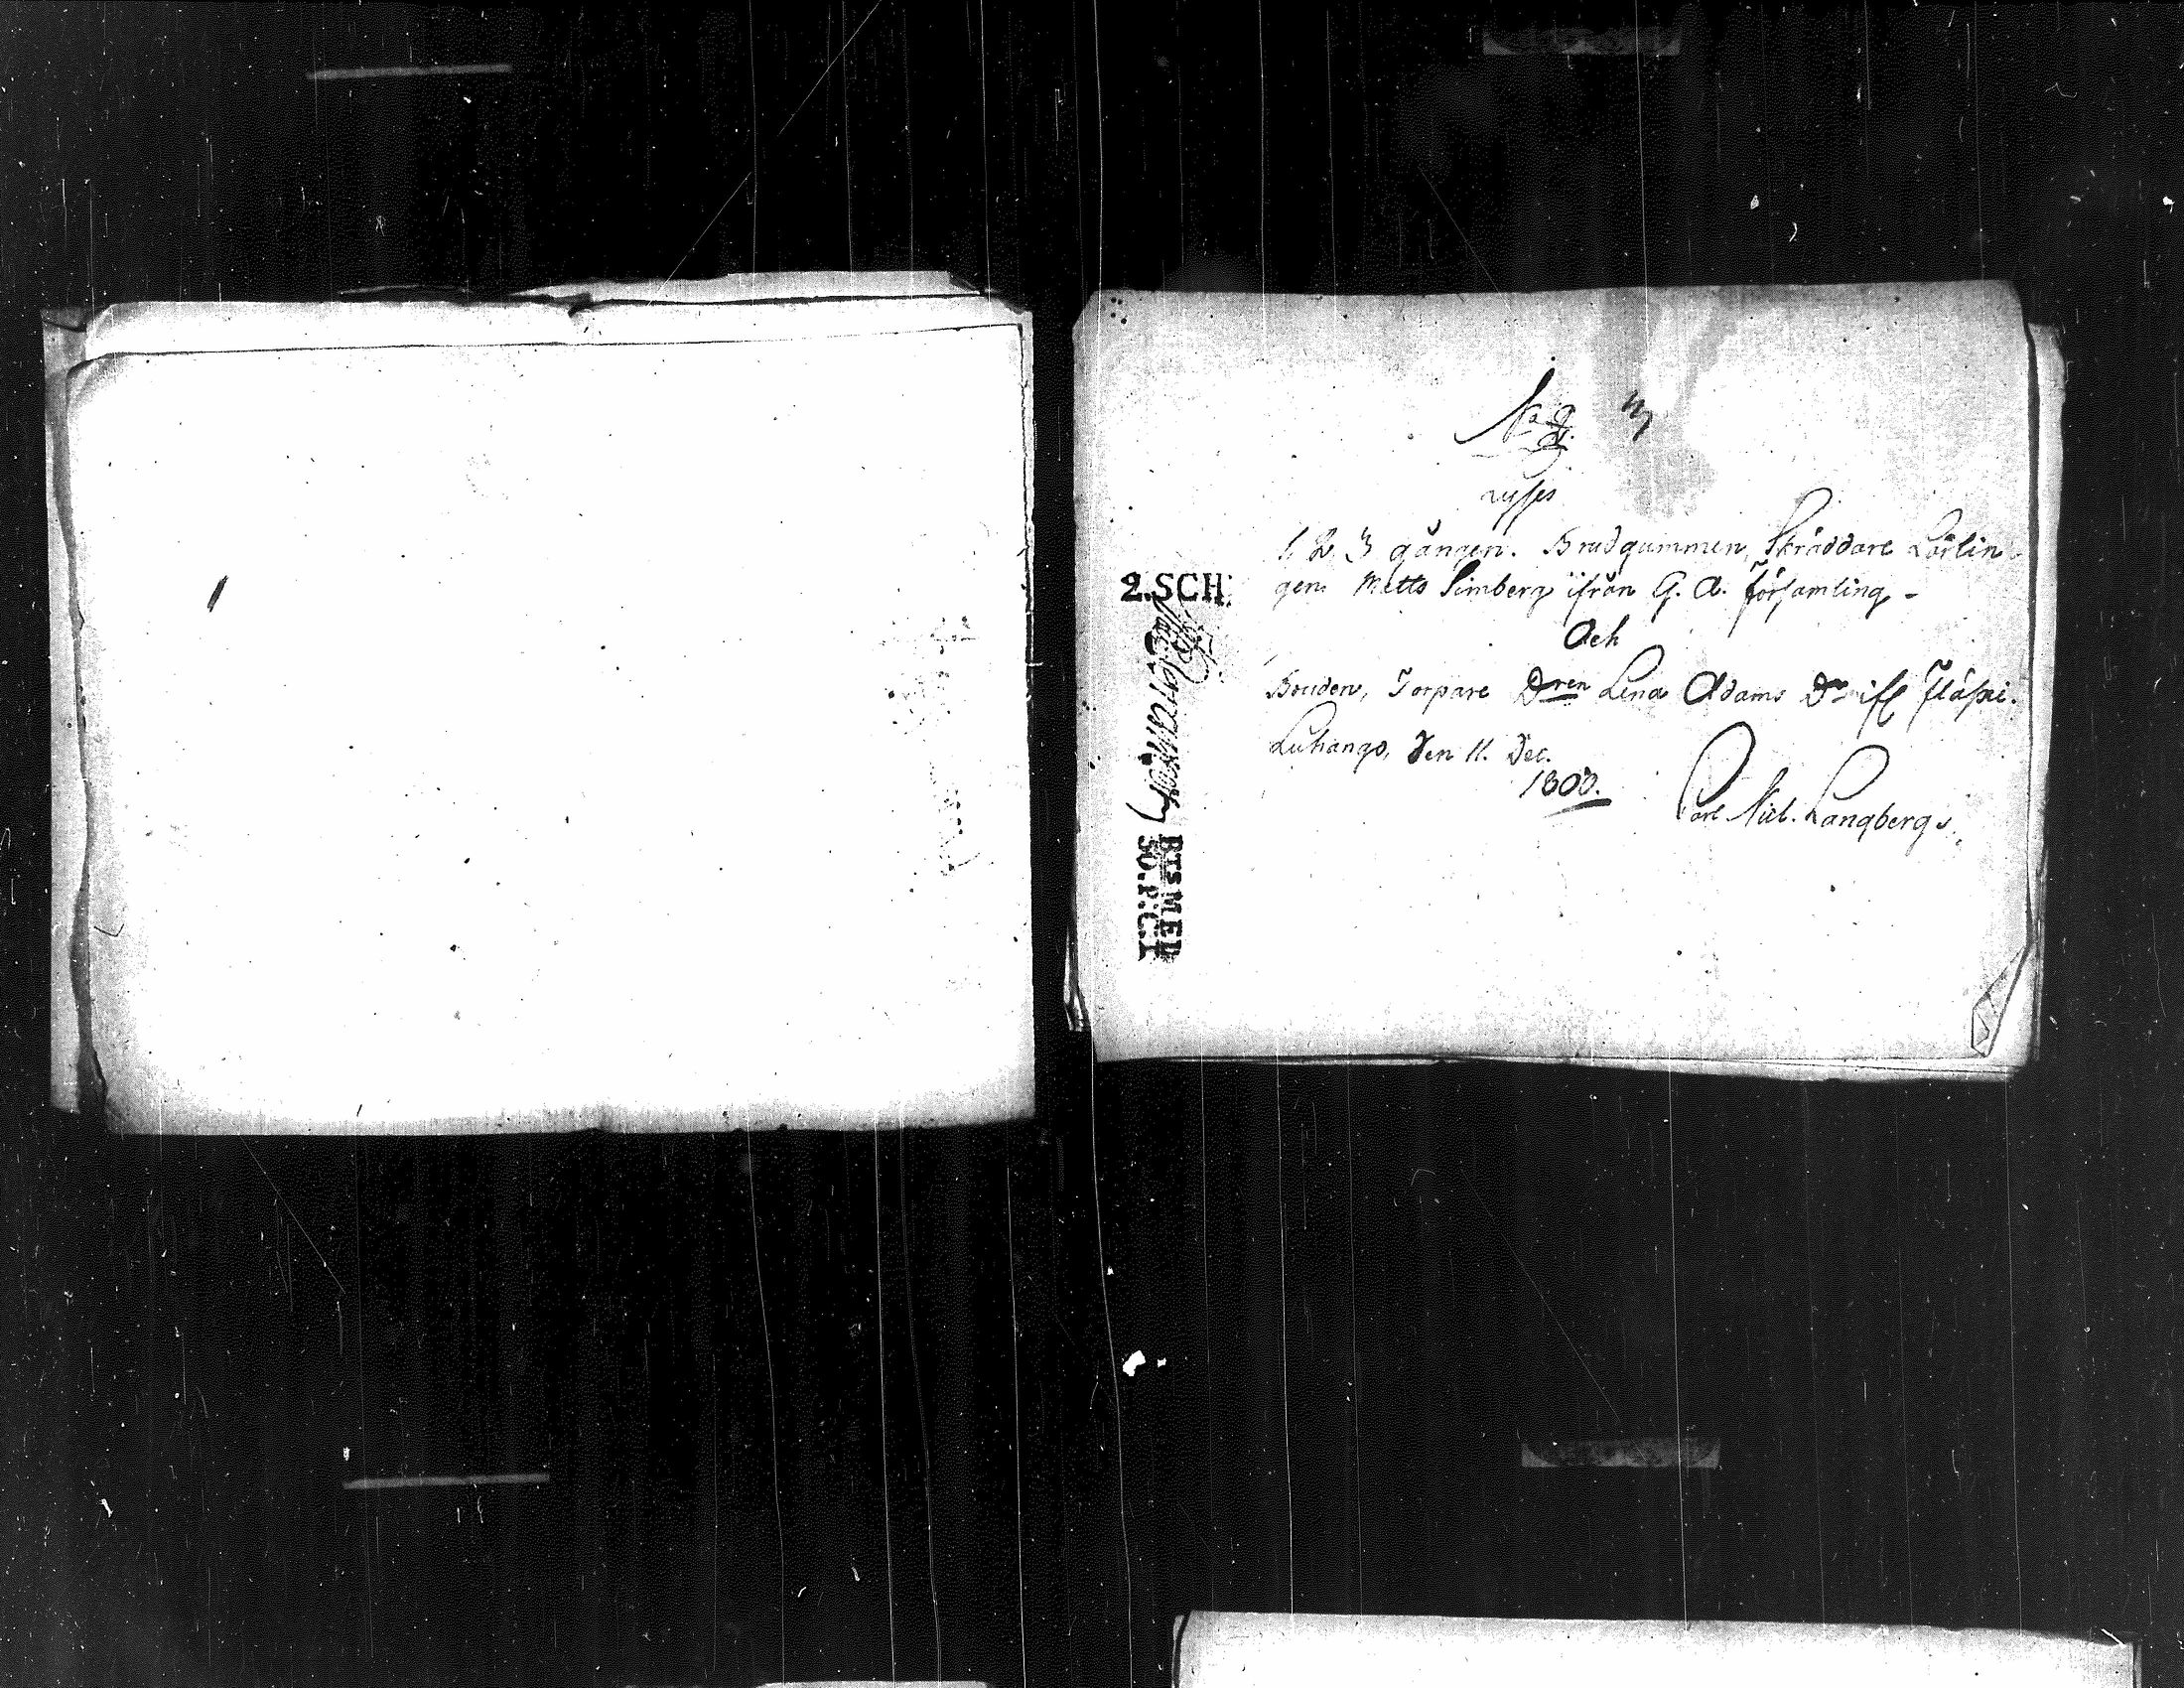 No 8. 3
lysses
1, 2, 3 gången. Brudgummen, Skräddare Lärlin-
gen Matts Simberg ifrån G. A. Församling -
Och
Bruden, Torpare Dren Lena Adams Dr ifr
Luhango, den 11. Dec.
1808.
Carl Nicl. Langberg
2.SCH:
BTSMED
SO.P:C.T